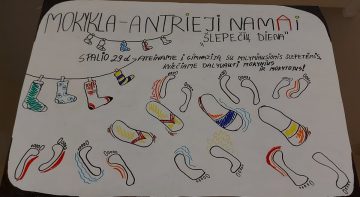 MOKYKLA-ANTRIEJI NAMAI
„ŠLEPEČIŲ DIENA"
SPALIO 29 d. ATEINAME Į GIMNAZIJĄ SU MĖGSTAMIAUSIOMIS ŠLEPETĖMIS.
KVIEČIAME DALYVAUTI MOKINIUS
IR MOKYTOJUS!